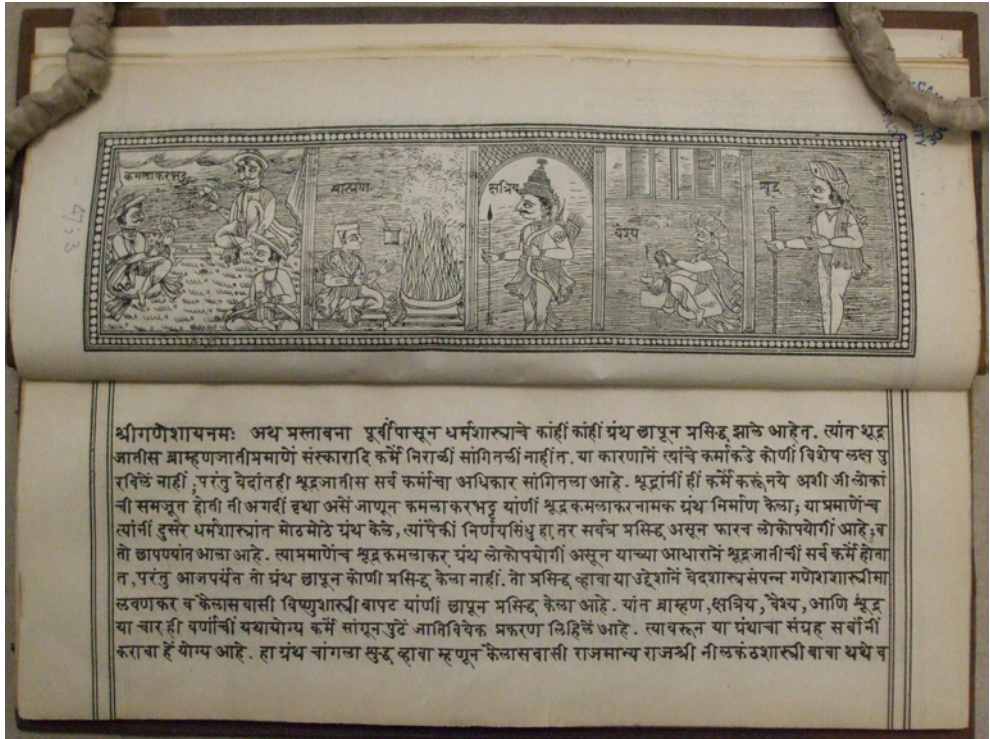 कमलाकरभट्ट
ब्राम्हण
क्षत्रिय
वैश्य
शूद्र
श्रीगणेशायनमः अथ प्रस्तावना पूर्वीपासून धर्मशास्त्राचे कांहीं कांहीं ग्रंथ छापून प्रसिद्ध झाले आहेत. त्यांत शूद्र
जातीस ब्राम्हणजातीप्रमाणें संस्कारादि कर्में निराळीं सांगितलीं नाहींत. या कारणानें त्यांचे कर्माकडे कोणीं विशेष लक्ष पु
रविलें नाहीं; परंतु वेदांतही शूद्रजातीस सर्व कर्माचा अधिकार सांगितला आहे. शूद्रांनीं हीं कर्में करूंनये अशी जी लोकां
ची समजूत होती ती अगदीं वृथा असें जाणून कमलाकरभट्ट यांणीं शूद्रकमलाकरनामक ग्रंथ निर्माण केला; याप्रमाणेंच
त्यांनीं दुसरे धर्मशास्त्रांत मोठमोठे ग्रंथ केले, त्यांपैकीं निर्णयसिंधु हा तर सर्वत्र प्रसिद्ध असून फारच लोकोपयोगीं आहे; व
तो छापण्यांत आला आहे. त्याप्रमाणेंच शूद्रकमलाकर ग्रंथ लोकोपयोगीं असून याच्या आधारानें शूद्रजातीचीं सर्व कर्में होता
त, परंतु आजपर्यंत तो ग्रंथ छापून कोणी प्रसिद्ध केला नाहीं. तो प्रसिद्ध व्हावा या उद्देशानें वेदशास्त्रसंपन्न गणेशशास्त्रीमा
लवणकर व कैलासवासी विष्णुशास्त्रीबापट यांणीं छापून प्रसिद्ध केला आहे. यांत ब्राम्हण, क्षत्रिय, वैश्य, आणि शूद्र
या चारही वर्णाचीं यथायोग्य कर्में सांगून पुढें जातिविवेक प्रकरण लिहिलें आहे. त्यावरून या ग्रंथाचा संग्रह सर्वांनीं
करावा हें योग्य आहे. हा ग्रंथ चांगला शुद्ध व्हावा म्हणून कैलासवासी राजमान्य राजश्री नीलकंठशास्त्री बाबा थथे व